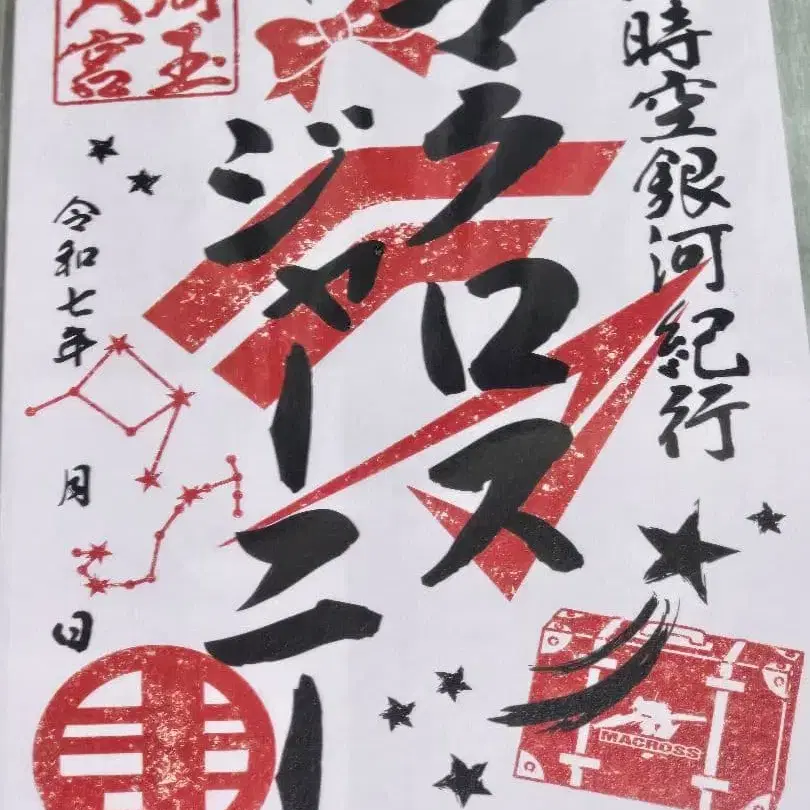 時空銀河紀行
マクロス
ジャーニー
玉
宮
令和七年
月
日
MACROSS